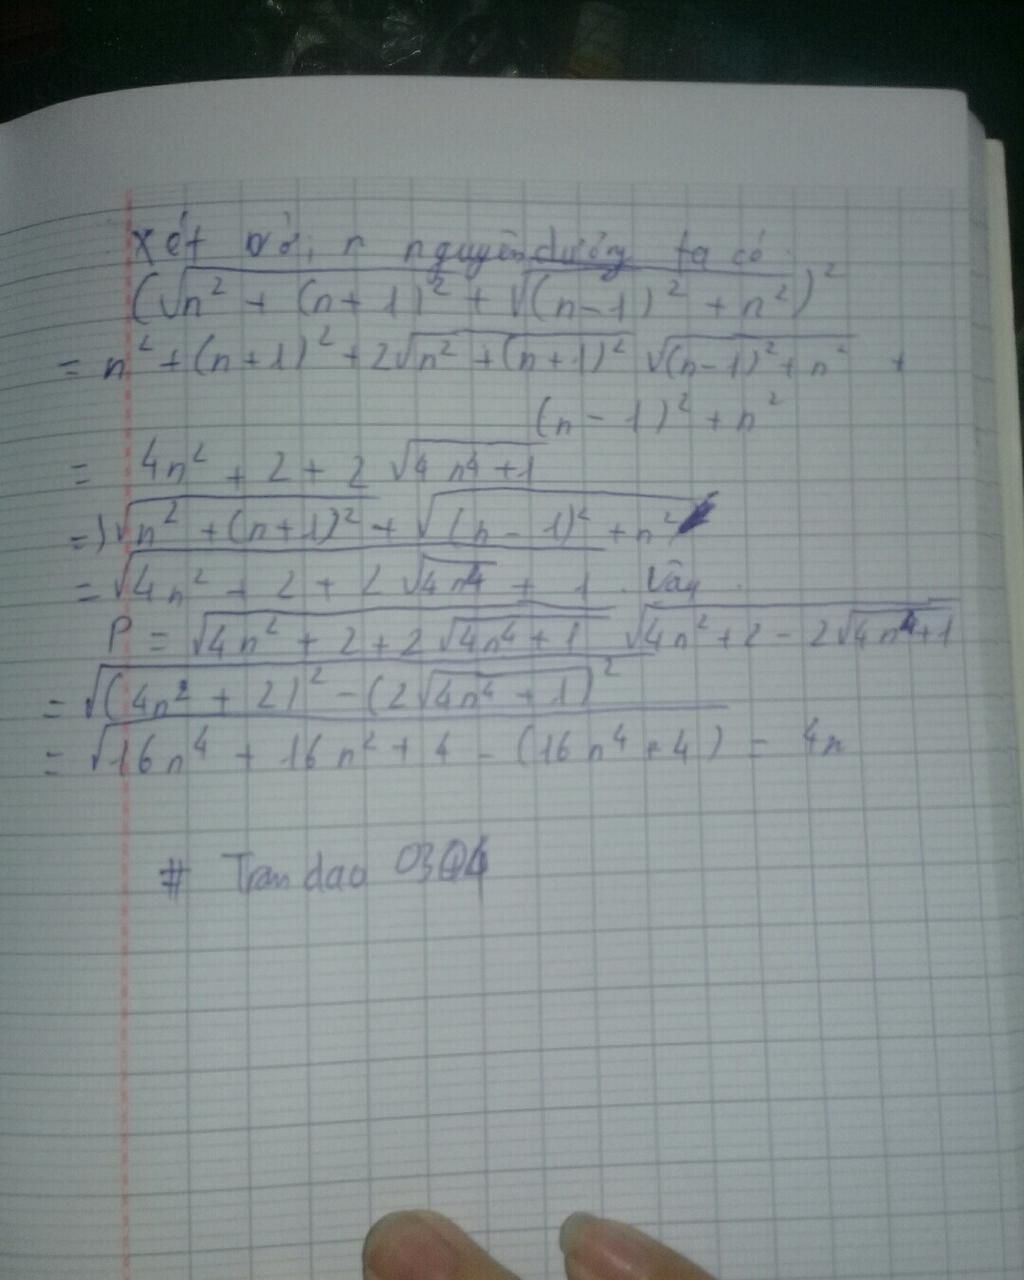 Xét với n nguyên dương ta có
(√(n² + (n+1)²) + √((n-1)² + n²))²
= n² + (n+1)² + 2√(n² + (n+1)²) √((n-1)² + n²) +
(n - 1)² + n²
= 4n² + 2 + 2 √(4n⁴ + 1)
=) √(n² + (n+1)²) + √((n - 1)² + n²)
= √(4n² + 2 + 2 √(4n⁴ + 1)) . Vậy
P = √(4n² + 2 + 2 √(4n⁴ + 1)) √(4n² + 2 - 2√(4n⁴ + 1))
= √((4n² + 2)² - (2√(4n⁴ + 1))²)
= √(16n⁴ + 16n² + 4 - (16n⁴ + 4)) = 4n
# Tran dao